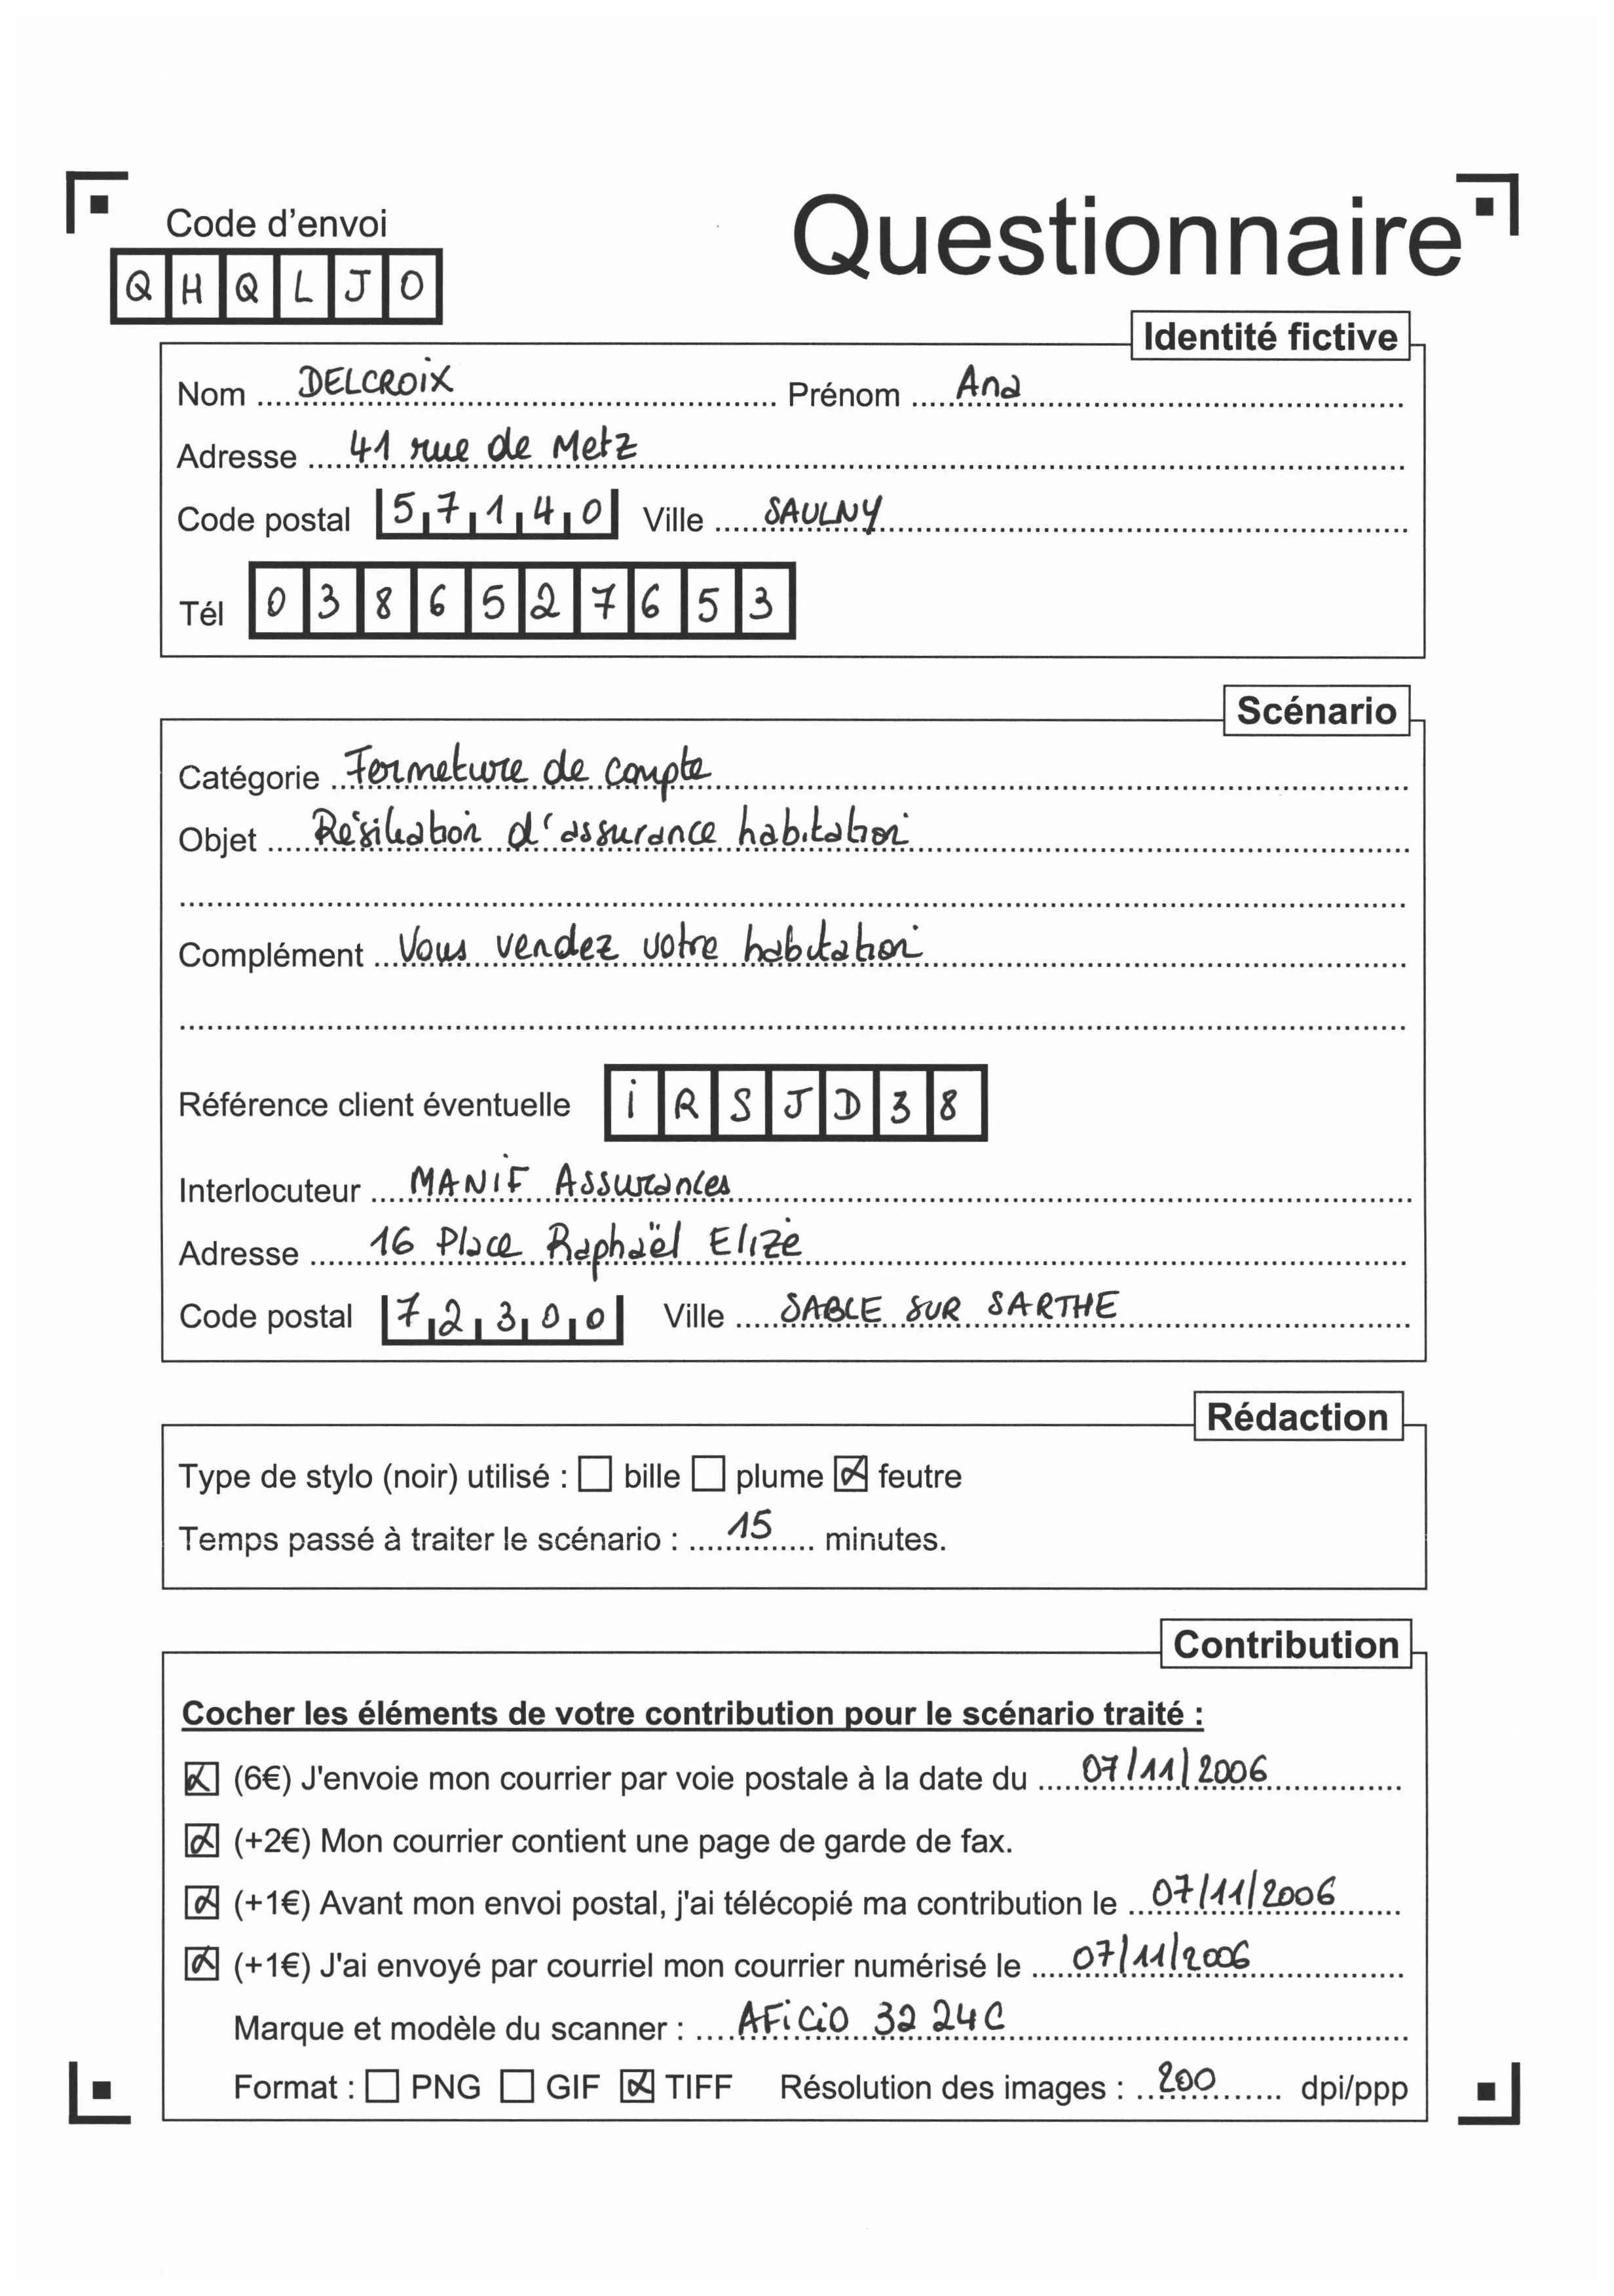 Code d'envoi
Questionnaire
Q H Q L J O
Identité fictive
Nom DELCROIX Prénom Ana
Adresse 41 rue de Metz
Code postal 57140 Ville SAULNY
Tél 0386527653
Scénario
Catégorie Fermeture de compte
Objet Résiliation d'assurance habitation
Complément Vous vendez votre habitation
Référence client éventuelle IRSJD38
Interlocuteur MANIF Assurances
Adresse 16 Place Raphaël Elizé
Code postal 72300 Ville SABLE SUR SARTHE
Rédaction
Type de stylo (noir) utilisé : ☐ bille ☐ plume ☒ feutre
Temps passé à traiter le scénario : 15 minutes.
Contribution
Cocher les éléments de votre contribution pour le scénario traité :
☒ (6€) J'envoie mon courrier par voie postale à la date du 07/11/2006
☒ (+2€) Mon courrier contient une page de garde de fax.
☒ (+1€) Avant mon envoi postal, j'ai télécopié ma contribution le 07/11/2006
☒ (+1€) J'ai envoyé par courriel mon courrier numérisé le 07/11/2006
Marque et modèle du scanner : AFiCiO 32 24C
Format : ☐ PNG ☐ GIF ☒ TIFF Résolution des images : 200 dpi/ppp